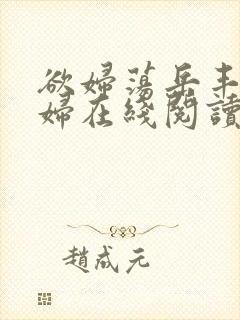 欲婦蕩岳丰
婦在綫閱讀
趙成元